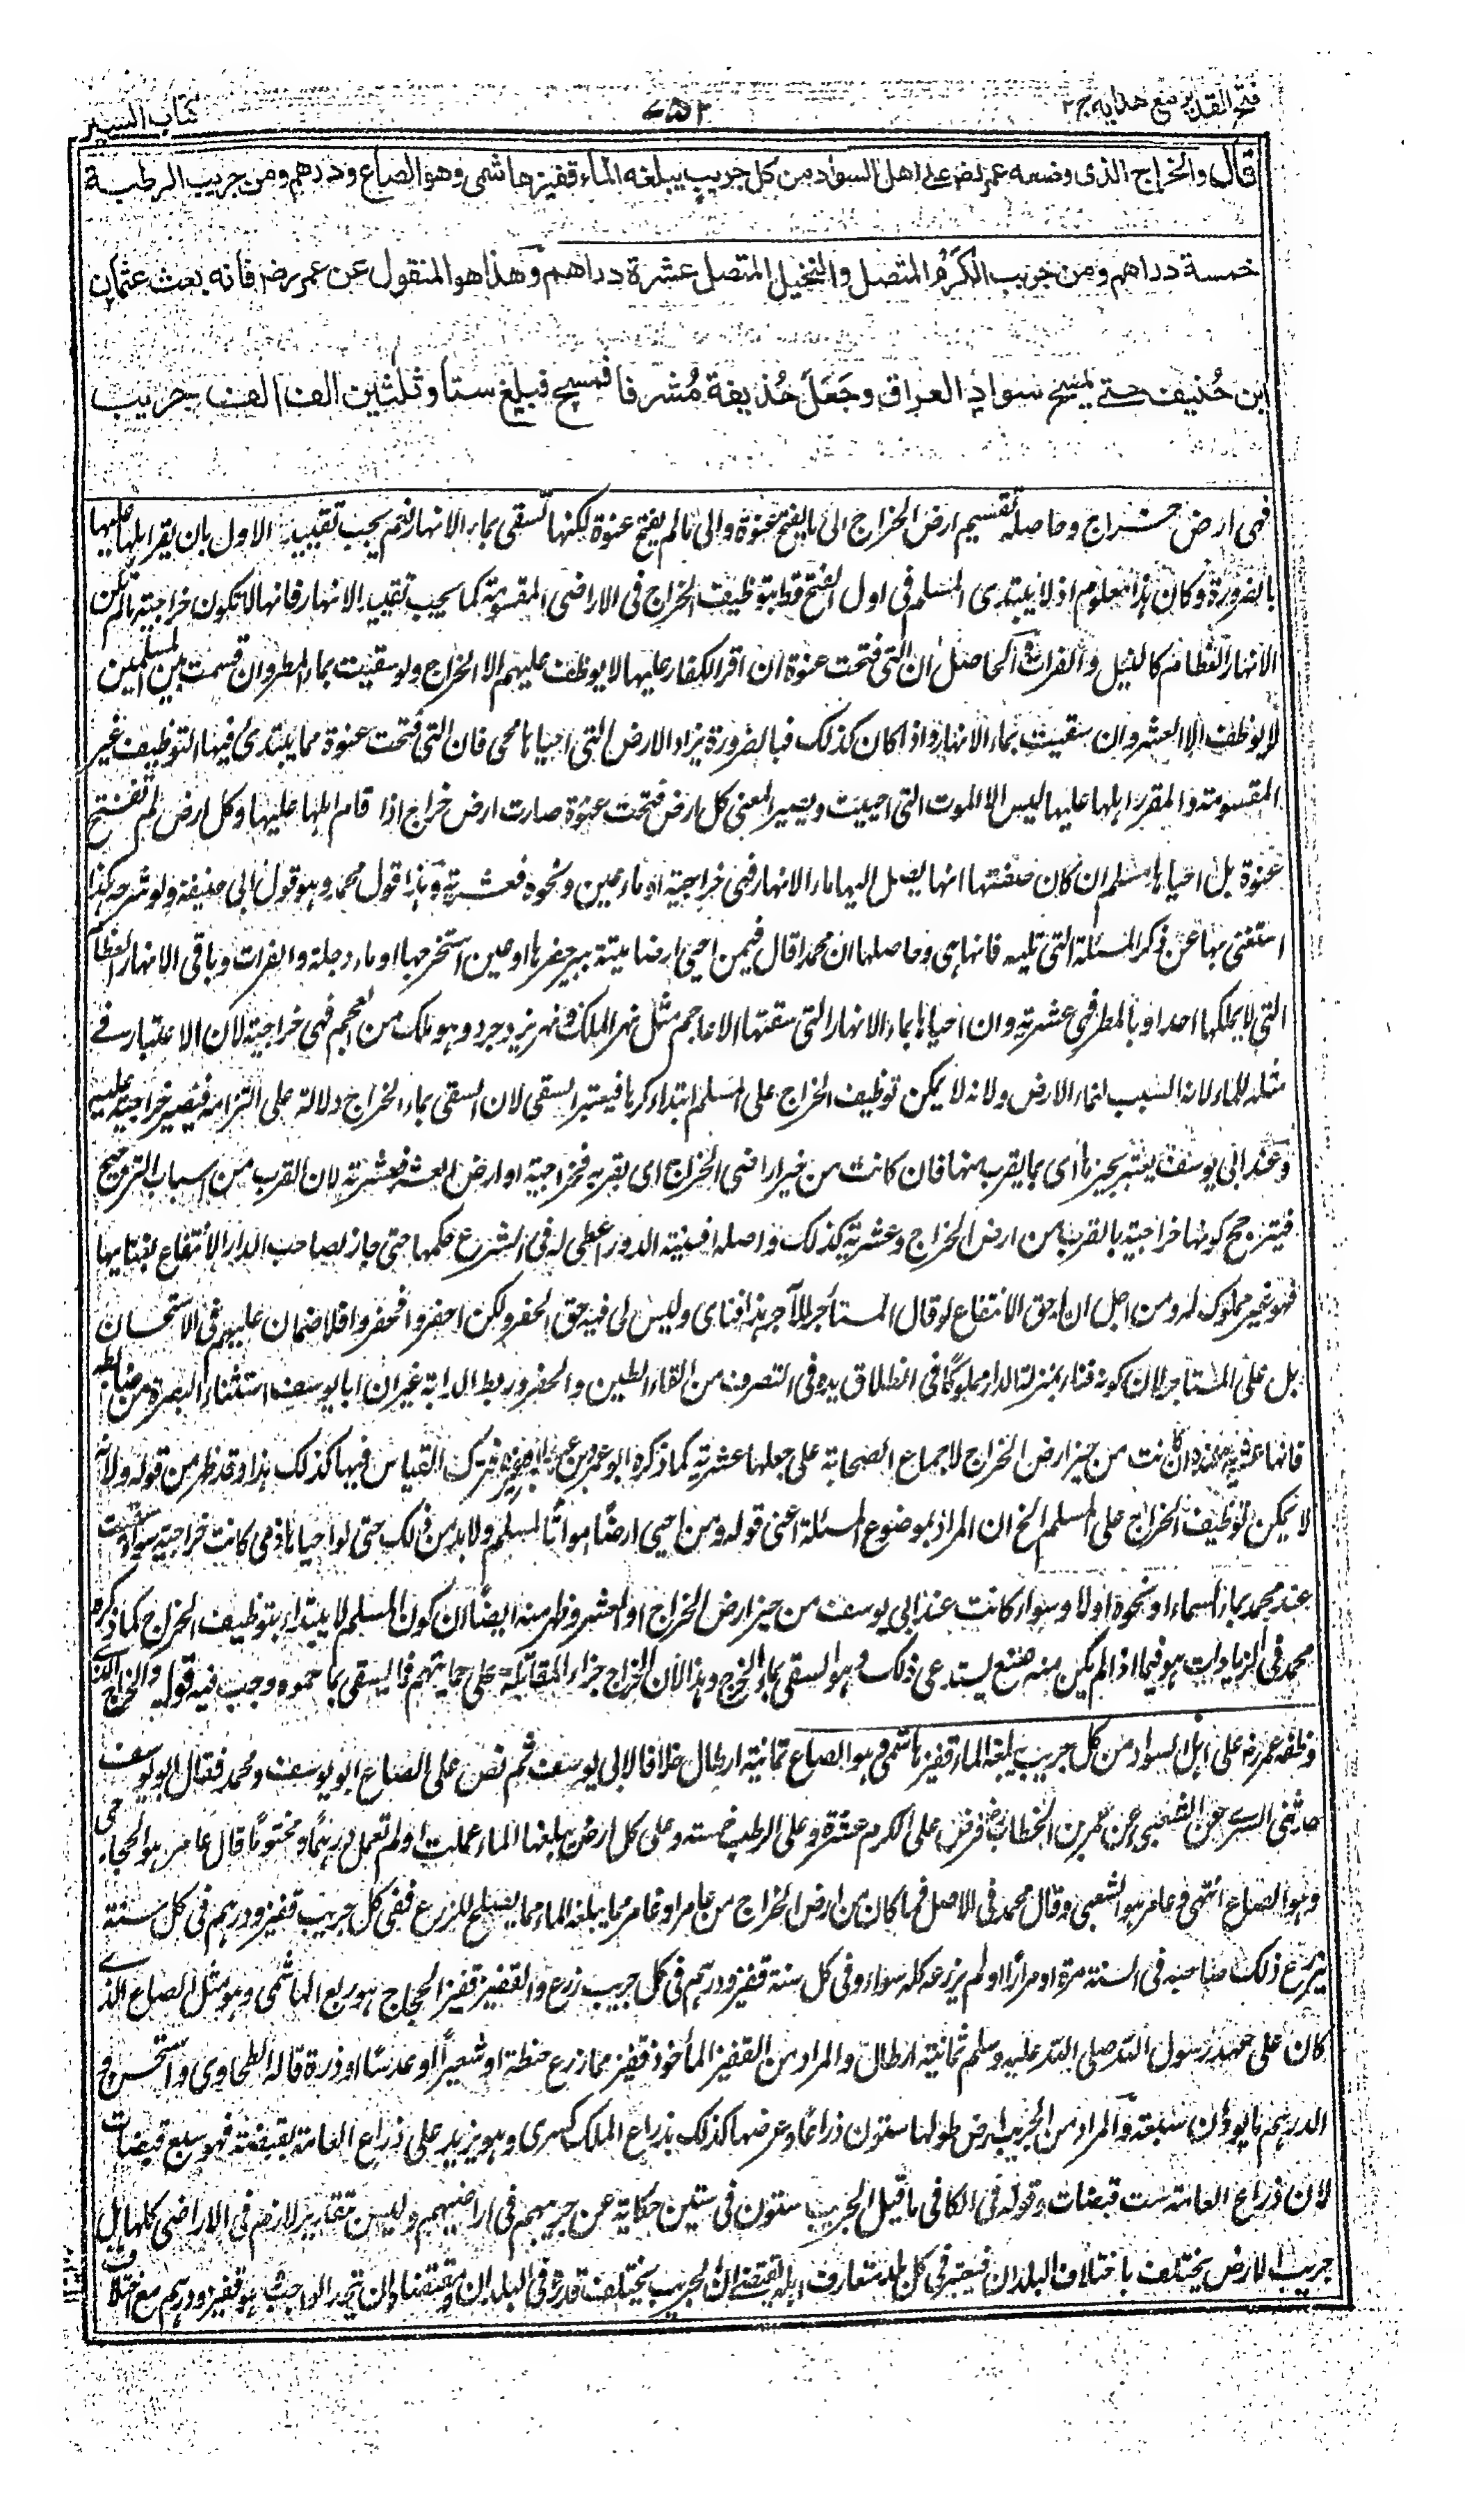 فتح القدير مع هدايه ج ٢
٧٥٢
كتاب السير
قال والخراج الذى وضعه عمر رض على اهل السواد من كل جريب يبلغه الماء قفيز هاشمى وهو الصاع ودرهم ومن جريب الرطبة
خمسة دراهم ومن جريب الكرم المتصل والنخيل المتصل عشرة دراهم وهذا هو المنقول عن عمر رض فانه بعث عثمان
بن حُنيف حتے يمسح سواد العراق وجَعَلَ حُذيفة مُشرفا فمسح فبلغ ستا وثلثين الف الف جريب
فهى ارض خراج وحاصله تقسيم ارض الخراج الى ما يفتح عنوة والى ما لم يفتح عنوة لكنها تسقى بماء الانهار ثم يجب تقييد الاول بان يقر اهلها عليها
بالضرورة وكان هذا معلوم اذ لا يبتدى المسلم فى اول الفتح قط بتوظيف الخراج فى الاراضى المقسومة كما يجب تقييد الانهار فانها لا تكون خراجية مالم تكن
الانهار العظام كالنيل والفرات الحاصل ان التى فتحت عنوة ان اقر الكفار عليها لا يوظف عليهم الا الخراج ولو سقيت بماء المطر وان قسمت بين المسلمين
لا يوظف الا العشر وان سقيت بماء الانهار واذا كان كذلك فبالضرورة يزاد الارض التى احياها محى فان التى فتحت عنوة مما يبتدئ فيها التوظيف غير
المقسومة والمقرر اهلها عليها ليس الا الموت التى احييت ويصير المعنى كل ارض فتحت عنوة صارت ارض خراج اذا قام اهلها عليها وكل ارض لم تفتح
عنوة بل احياها مسلم ان كان صفتها انها يصل اليها ماء الانهار فهى خراجية او ماء عين ونحوه فعشرية وهذا قول محمد وهو قول ابى حنيفة ولو شرحه هكذا
استغنى بها عن ذكر المسئلة التى تليه فانها هى وحاصلها ان محمدا قال فيمن احيى ارضا ميتة ببير حفرها او عين استخرجها او ماء دجلة والفرات وباقى الانهار العظام
التى لا يملكها احد او بالمطر فهى عشرية وان احياها بماء الانهار التى سقتها الاعاجم مثل نهر الملك ونهر يزدجرد وهو ملك من العجم فهى خراجية لان الاعتبار فے
مثله للماء لانه السبب لنماء الارض ولانه لا يمكن توظيف الخراج على المسلم ابتداء كرها فيعتبر السقى لان السقى بماء الخراج دلالة على التزامه فيصير خراجية عليه
وعند ابى يوسف يعتبر بحيزها اى بما يقرب منها فان كانت من خير اراضى الخراج اى بقربه فخراجية او ارض العشر فعشرية لان القرب من اسباب الترجيح
فيترجح كونها خراجية بالقرب من ارض الخراج وعشرية كذلك واصله افنية الدور اعطى له فى الشرع حكمها حتى جاز لصاحب الدار الانتفاع بفنايها
فهو غير مملوك له ومن اجل ان له حق الانتفاع لو قال المستأجر للآجر هذا فناى وليس لى فيه حق الحفر ولكن احفروا فحفروا فلا ضمان عليهم فى الاستحسان
بل على المستأجر لان كونه فناء بمنزلة الدار مملوكا فى انطلاق يده فى التصرف من القاء الطين والحفر وربط الدابة غير ان ابا يوسف استثناء البصرة من ضابطه
فانها عشرية عنده وان كانت من حيز ارض الخراج لاجماع الصحابة على جعلها عشرية كما ذكره ابو عمر بن عبد البر وغيره فترك القياس فيها كذلك هذا وقد ظهر من قوله ولانه
لا يمكن توظيف الخراج على المسلم الخ ان المراد بموضوع المسئلة اعنى قوله ومن احيى ارضا مواتا المسلم ولا بد من ذلك حتى لو احياها ذمى كانت خراجية سواء سقيت
عند محمد بماء السماء او نحوه او لا وسواء كانت عند ابى يوسف من حيز ارض الخراج او العشر وظهر منه ايضا ان كون المسلم لا يبتداء بتوظيف الخراج كما ذكره
محمد فى الزيادات هو فيما اذا لم يكن منه صنع يستدعى ذلك وهو السقى بماء الخراج وهذا لان الخراج جزاء المقاتلة على حمايتهم فما يسقى بما حموه وجب فيه قوله والخراج الذى
وظفه عمر رض على اهل السواد من كل جريب يبلغه الماء قفيز هاشمى وهو الصاع ثمانية ارطال خلافا لابى يوسف ثم نص على الصاع ابو يوسف ومحمد فقال ابو يوسف
حدثنى السرى عن الشعبى عن عمر بن الخطاب رض فرض على الكرم عشرة وعلى الرطب خمسة وعلى كل ارض يبلغها الماء عملت او لم تعمل درهما ومختوما قال عامر هو الحجاجى
وهو الصاع انتهى وعامر هو الشعبى وقال محمد فى الاصل فما كان من ارض الخراج من عامر او غامر مما يبلغه الماء مما يصلح للزرع ففى كل جريب قفيز ودرهم فى كل سنة
يزرع ذلك صاحبه فى السنة مرة او مرارا او لم يزرعه كله سواء وفى كل سنة قفيز ودرهم فى كل جريب زرع والقفيز قفيز الحجاج هو ربع الهاشمى وهو مثل الصاع الذے
كان على عهد رسول الله صلى الله عليه وسلم ثمانية ارطال والمراد من القفيز المأخوذ قفيز مما زرع حنطة او شعيرا او عدسا او ذرة قاله الطحاوى واستحسن و
الدرهم ما يوزن سبعة والمراد من الجريب ارض طولها ستون ذراعا وعرضها كذلك بذراع الملك كسرى وهو يزيد على ذراع العامة بقبضة فهو سبع قبضات
لان ذراع العامة ست قبضات وقوله فى الكافى ما قيل الجريب ستون فى ستين حكاية عن جريبهم فى اراضيهم وليس بتقدير لازم فى الاراضى كلها بل
جريب الارض يختلف باختلاف البلدان فيعتبر فى كل بلد متعارف اهله يقتضى ان الجريب يختلف قدره فى البلدان ومقتضاه ان يتحد الواجب هو قفيز ودرهم مع اختلاف